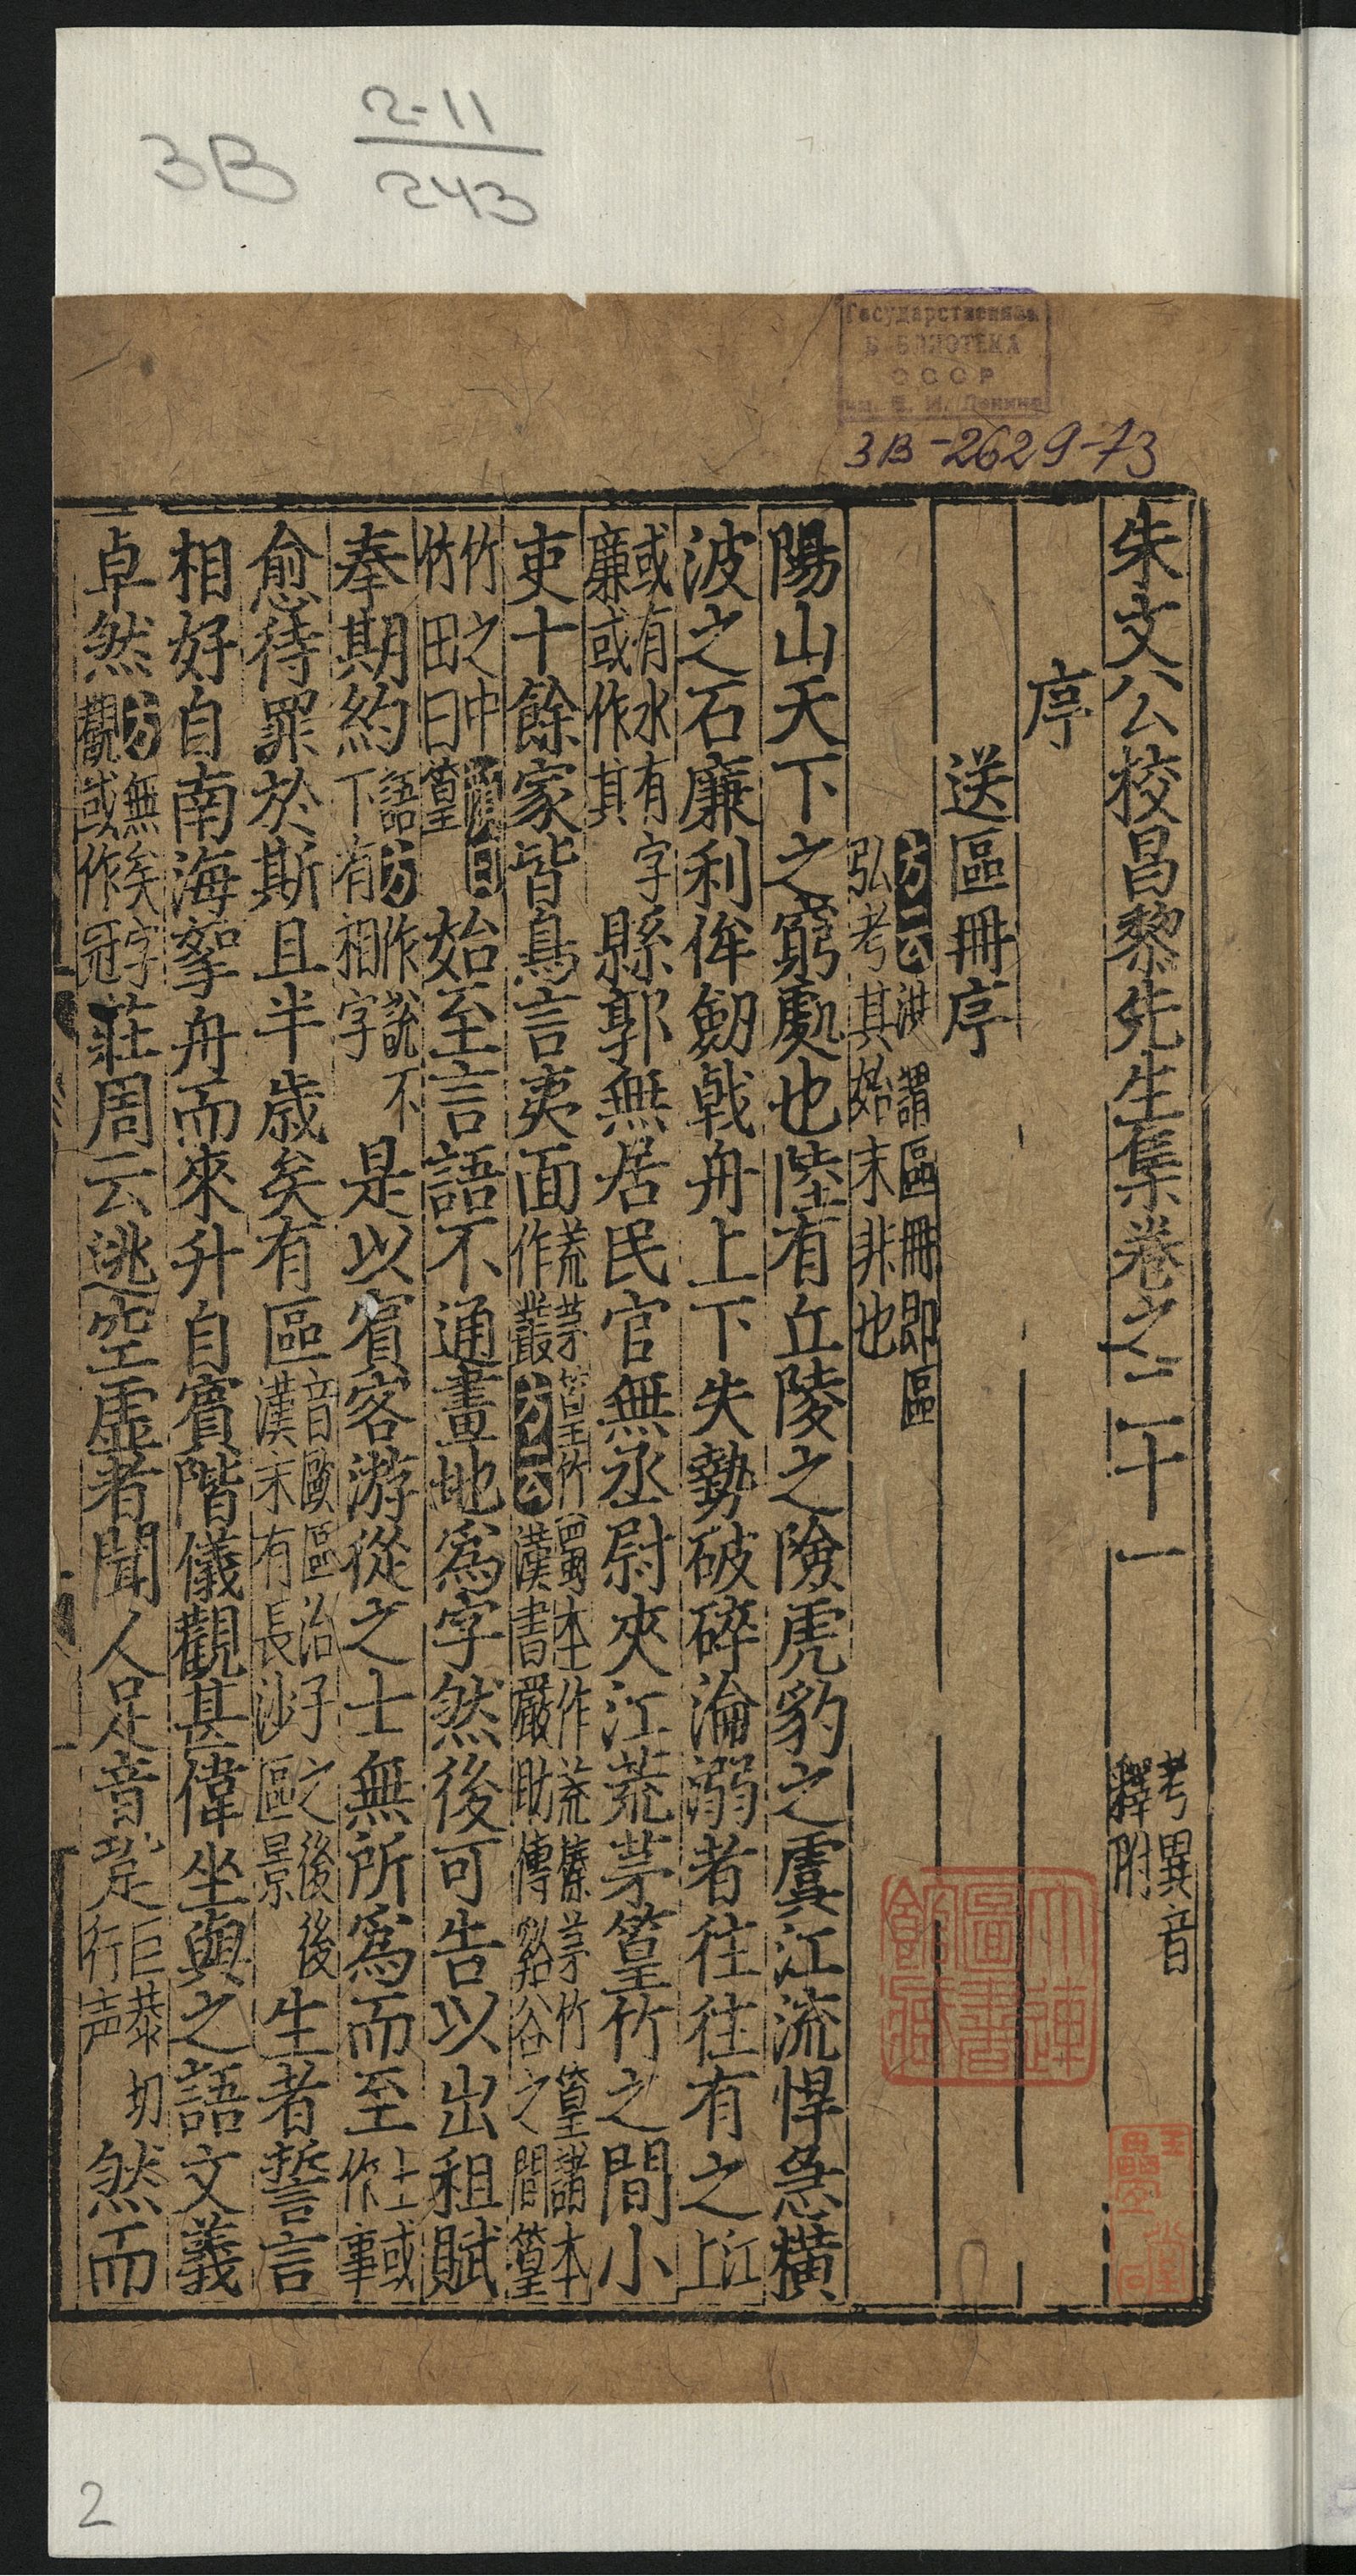 3В 2-11
243
Государственная
БИБЛИОТЕКА
СССР
им. В. И. Ленина
3В-2629-73
朱文公校昌黎先生集卷之二十一 考異音
釋附
序
送區冊序
方云洪謂區冊即區
弘考其始末非也
陽山天下之窮處也陸有丘陵之險虎豹之虞江流悍急橫
波之石廉利侔劒戟舟上下失勢破碎淪溺者往往有之 江
上
或有水有字
廉或作其 縣郭無居民官無丞尉夾江荒茅篁竹之間小
吏十餘家皆鳥言夷面 荒茅篁竹蜀本作荒榛茅竹篁諸本
作叢方云漢書嚴助傳谿谷之間篁
竹之中顔曰
竹田曰篁 始至言語不通畫地爲字然後可告以出租賦
奉期約 語方作說不
下有相字 是以賓客游從之士無所爲而至 士或
作事
愈待罪於斯且半歲矣有區 音歐區治子之後後
漢末有長沙區景 生者誓言
相好自南海挐舟而來升自賓階儀觀甚偉坐與之語文義
卓然 方無矣字
觀或作冠 莊周云逃空虛者聞人足音跫 巨恭切
行声 然而
大連
圖書
館藏
2